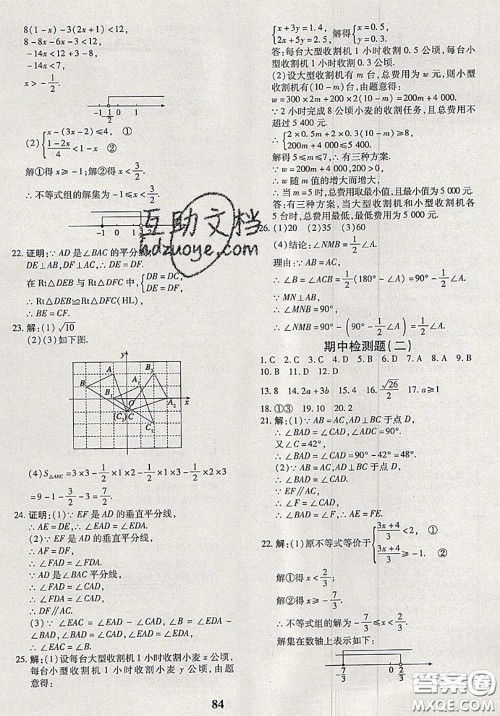 8(1-x)-3(2x+1)<12,
8-8x-6x-3<12,
-14x<12-8+3,
-14x<7,
x>-1/2.
-1 0 1
(2) {x-(3x-2)≤4, ①
(1-2x)/4<1-x ②
解①得x≥-1;解②得x<3/2.
∴不等式组的解集为-1≤x<3/2.
22.证明:∵AD是∠BAC的平分线
DE⊥AB,DF⊥AC,∴DE=DF.
在Rt△DEB与Rt△DFC中 {DB=DC,
DE=DF,
∴Rt△DEB≌Rt△DFC(HL),
∴BE=CF.
23.解:(1)√10
(2)(3)如下图.
(4)S△ABC=3×3-1/2×1×3-1/2×1×2-1/2×2×3
=9-1-3/2-3=7/2.
24.证明:(1)∵EF是AD的垂直平分线,
∴AE=DE,∴∠EAD=∠EDA.
(2)∵EF是AD的垂直平分线,
∴AF=DF.
∴∠FAD=∠FDA.
∵AD是∠BAC平分线,
∴∠FAD=∠CAD.
∴∠FDA=∠CAD.
∴DF∥AC.
(3)∵∠EAC=∠EAD-∠CAD,∠B=∠EDA
-∠BAD,且∠BAD=∠CAD,∠EAD=∠EDA,
∴∠EAC=∠B.
25.解:(1)设每台大型收割机1小时收割小麦x公顷,
每台小型收割机1小时收割小麦y公顷,由题
意得:
{x+3y=1.4, 解得 {x=0.5,
2x+5y=2.5, y=0.3,
答:每台大型收割机1小时收割0.5公顷,每台小
型收割机1小时收割0.3公顷.
(2)设大型收割机有m台,总费用为w元,则小型
收割机有(10-m)台,由题意得:
w=300×2m+200×2(10-m)=200m+4000.
∵2小时完成8公顷小麦的收割任务,且总费用不
超过5400元.
∴ {2×0.5m+2×0.3(10-m)≥8,
200m+4000≤5400.
解得:5≤m≤7,∴有三种方案.
∵w随m值的增大而增大,
∴当m=5时,总费用取最小值,最小值为5000元.
答:有三种方案,当大型收割机和小型收割机各
5台时,总费用最低,最低费用为5000元.
26.(1)20 (2)35 (3)60
(4)结论:∠NMB=1/2∠A.
理由:∵AB=AC,
∴∠B=∠ACB=1/2(180°-∠A)=90°-1/2∠A.
∵MN⊥AB,
∴∠MNB=90°,
∴∠NMB=90°-(90°-1/2∠A)=1/2∠A.
期中检测题(二)
1.C 2.C 3.D 4.D 5.B 6.D 7.A 8.A 9.B
10.B 11.A 12.D
13.8 14.2a+3b 15.4 16.√26/2 17.a≥1
18.①③ 19.10 20.2
21.解:(1)∵AB=AC,AD⊥BC于点D,
∴∠BAD=∠CAD,∠ADC=90°,
又∠C=42°.
∴∠BAD=∠CAD=90°-42°=48°.
(2)∵AB=AC,AD⊥BC于点D,
∴∠BAD=∠CAD,
∵EF∥AC,
∴∠F=∠CAD,
∴∠BAD=∠F,∴AE=FE.
22.解:(1)原不等式等价于 {(3x+4)/3<2, ①
(3x+4)/3≥-1 ②
解①得x<2/3;
解②得x≥-7/3.
∴不等式组的解为-7/3≤x<2/3.
解集在数轴上表示如下:
-7/3 0 2/3
84
互助文档
hdzuoye.com
答案圈
MXQE.COM